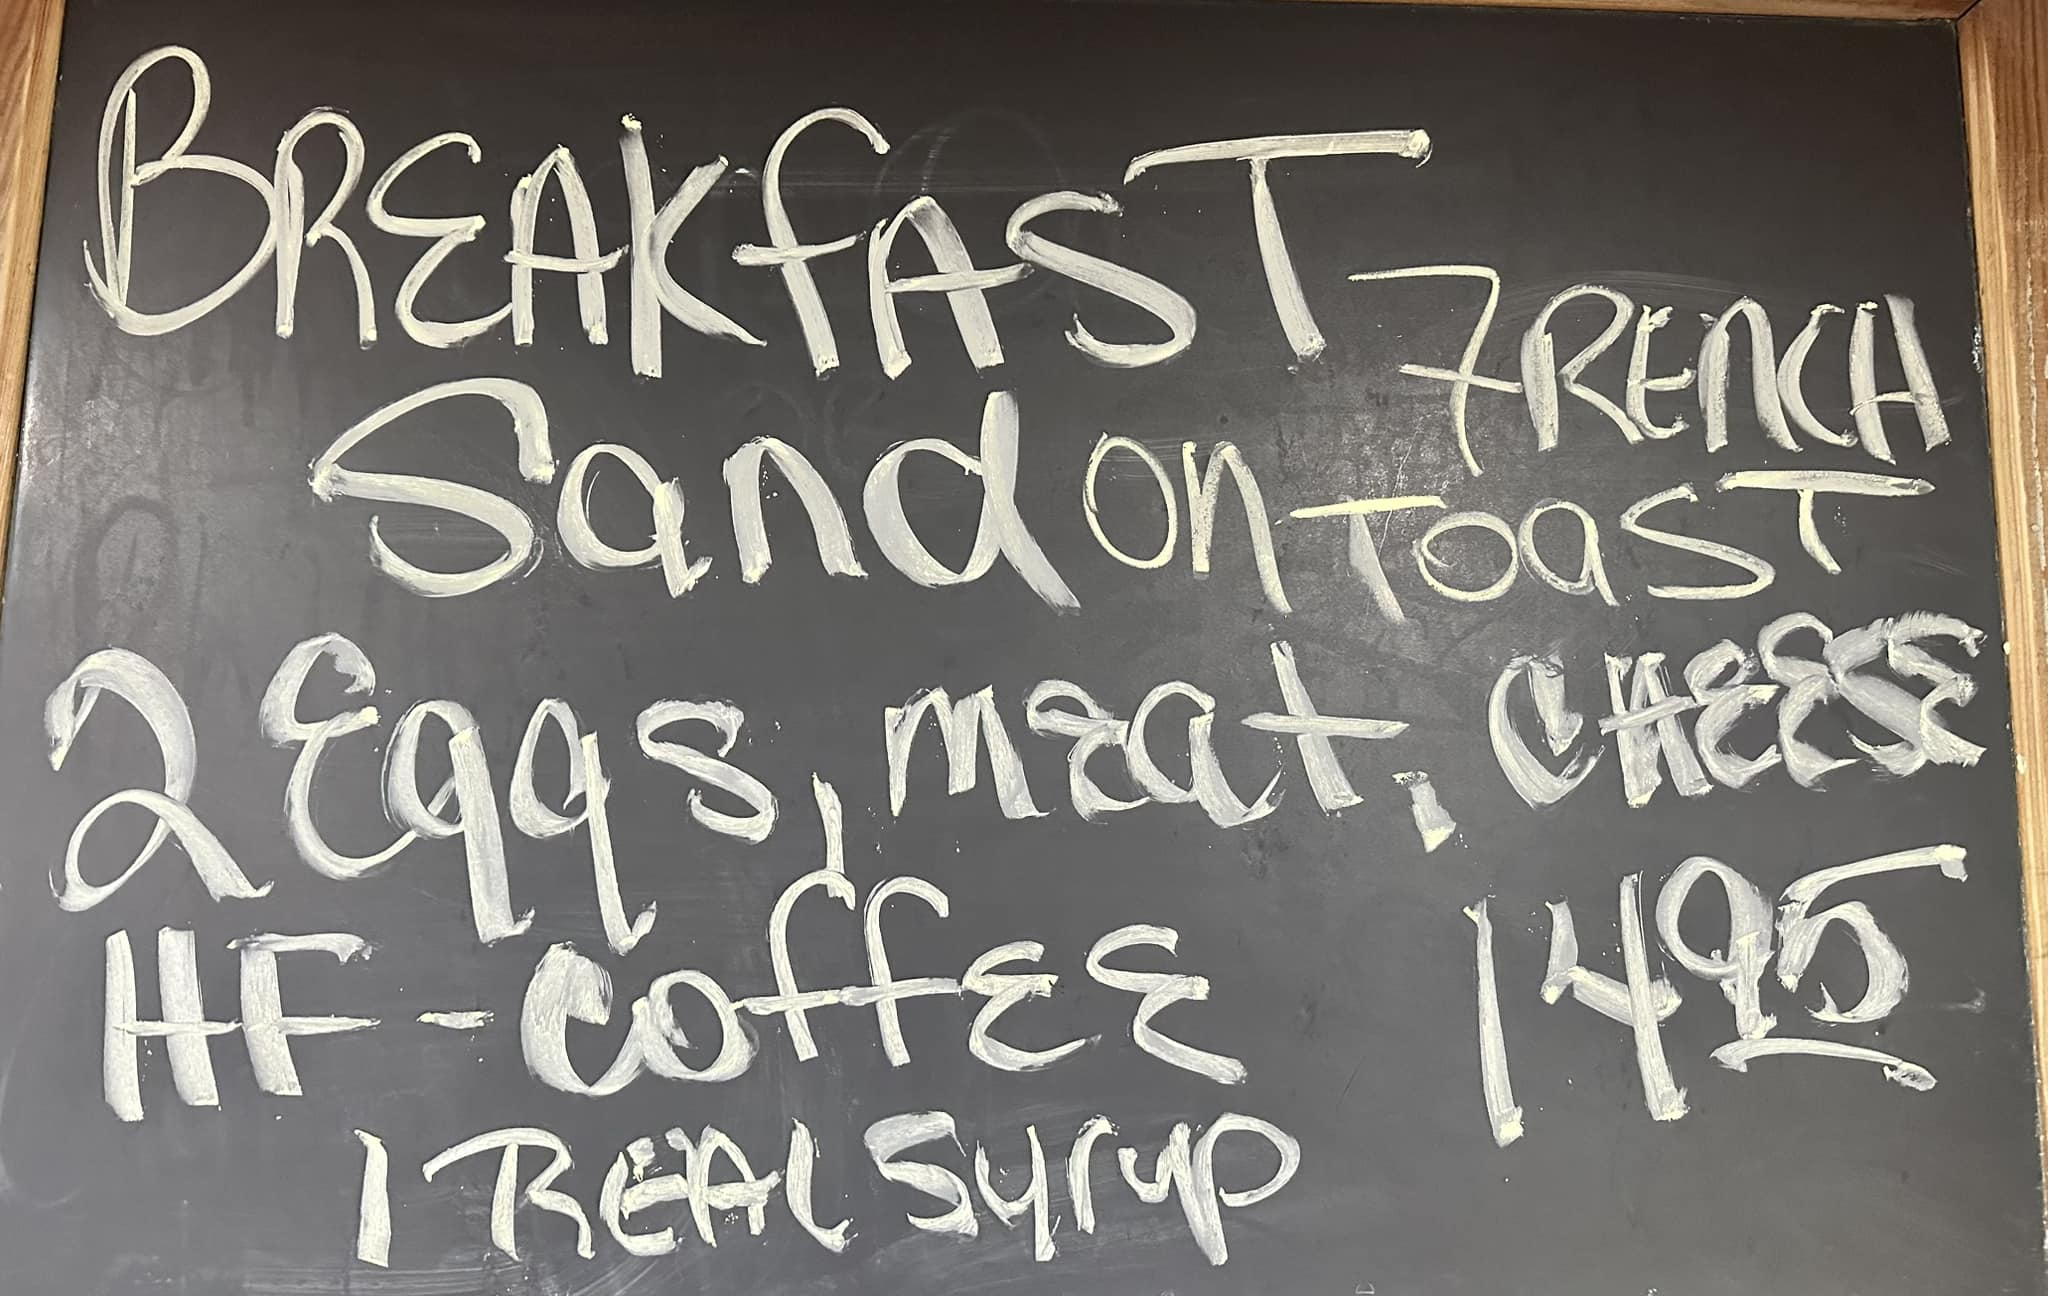 BREAKfAST
Sand on FRENCH
TOaST
2 Eggs, MEat, CHEESE
HF - COffEE 14 95
1 REAL Syrup